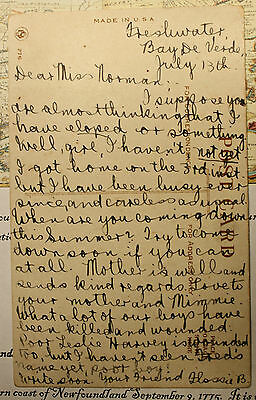 MADE IN U.S.A.
Freshwater,
Bay De Verde
July 13th
Dear Miss Norman.
I suppose you
are almost thinking that I
have eloped or something
Well, girl, I haven't not yet
I got home on the 3rd inst
but I have been busy ever
since, and careless as usual
When are you coming down
this Summer? Try to come
down soon if you can
at all. Mother is well and
sends kind regards. Love to
your mother and Mimmie.
What a lot of our boys have
been killed and wounded.
Poor Leslie Harvey is wounded
too, but I haven't seen
name yet, poor boy!
Write soon. Your Friend Flossie B.
FOR ADDRESS ONLY
rn coast of Newfoundland September 9, 1775. It is